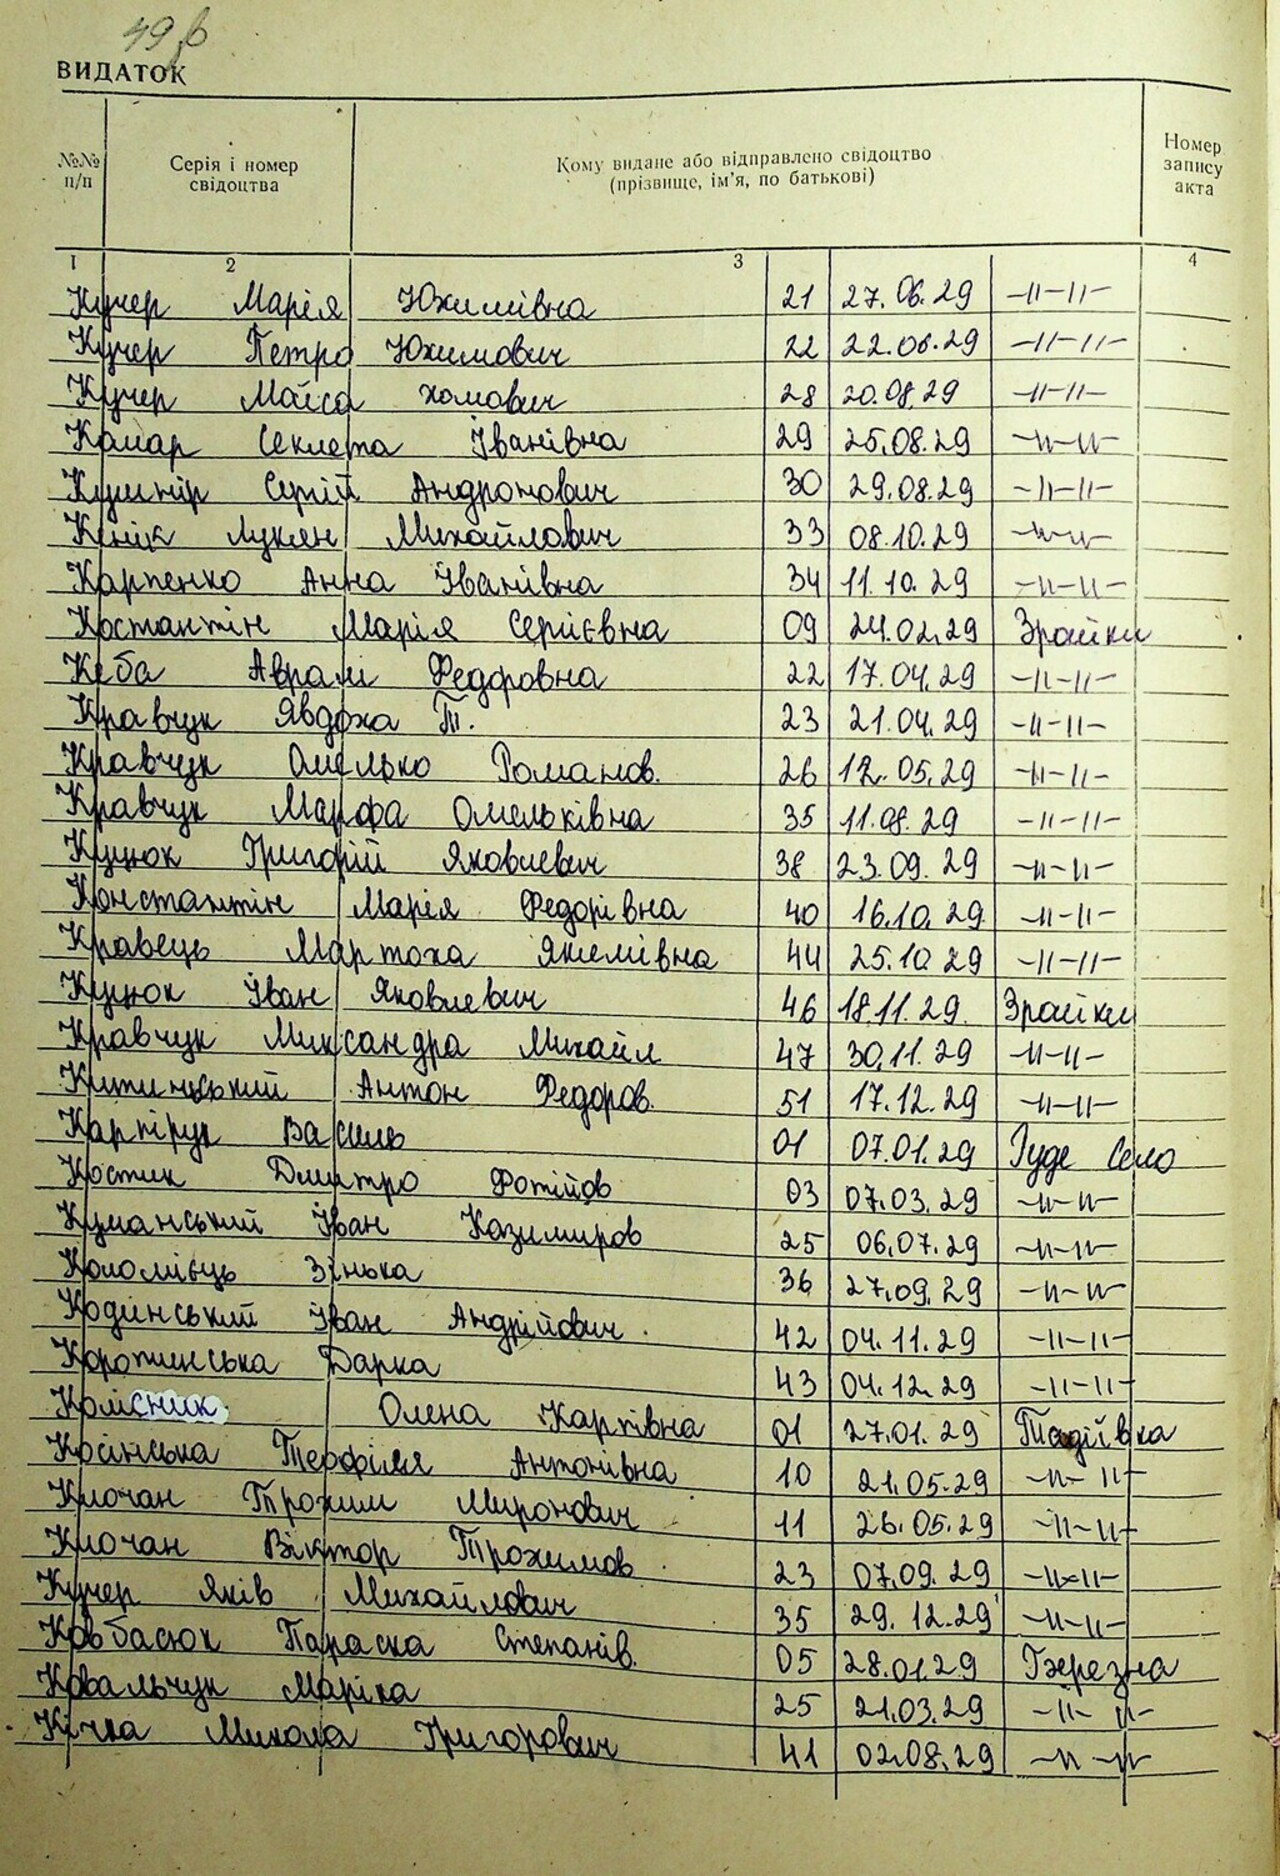 49
ВИДАТОК
№№ п/п Серія і номер свідоцтва Кому видане або відправлено свідоцтво (прізвище, ім'я, по батькові) Номер запису акта
1 2 3 4
Кучер Марія Юхимівна 21 27.06.29 -||-||-
Кучер Петро Юхимович 22 22.06.29 -||-||-
Кучер Мойса хомович 28 20.08.29 -||-||-
Комар Секлета Іванівна 29 25.08.29 -||-||-
Кушнір Сергій Андронович 30 29.08.29 -||-||-
Кенік Лукян Михайлович 33 08.10.29 -||-||-
Карпенко Анна Іванівна 34 11.10.29 -||-||-
Костантін Марія Сергієвна 09 24.02.29 Зрайки
Кеба Аврам Федоровна 22 17.04.29 -||-||-
Кравчук Явдоха Т. 23 21.04.29 -||-||-
Кравчук Омелько Романов. 26 12.05.29 -||-||-
Кравчук Марфа Омельківна 35 11.08.29 -||-||-
Куцюк Григорій Яковлевич 38 23.09.29 -||-||-
Константін Марія Федорівна 40 16.10.29 -||-||-
Кравець Мартоха Якимівна 44 25.10.29 -||-||-
Куцюк Іван Яковлевич 46 18.11.29. Зрайки
Кравчук Миксандра Михайл 47 30.11.29 -||-||-
Антон Федоров. 51 17.12.29 -||-||-
Карпрук Василь 01 07.01.29 Руде Село
Костик Дмитро Фотійов 03 07.03.29 -||-||-
Куманський Іван Казимиров 25 06.07.29 -||-||-
Коломієць Зінька 36 27.09.29 -||-||-
Кодинський Іван Андрійович. 42 04.11.29 -||-||-
Коропинська Дарка 43 04.12.29 -||-||-
Колісник Олена Карпівна 01 27.01.29 Тадіївка
Косінська Теофіля Антонівна 10 21.05.29 -||-||-
Клочан Трохим Миронович 11 26.05.29 -||-||-
Клочан Віктор Трохимов. 23 07.09.29 -||-||-
Кучер Яків Михайлович 35 29.12.29 -||-||-
Ковбасюк Параска Степанів. 05 28.01.29 Березна
Ковальчук Маріка 25 21.03.29 -||-||-
Кічка Микола Григорович 41 02.08.29 -||-||-